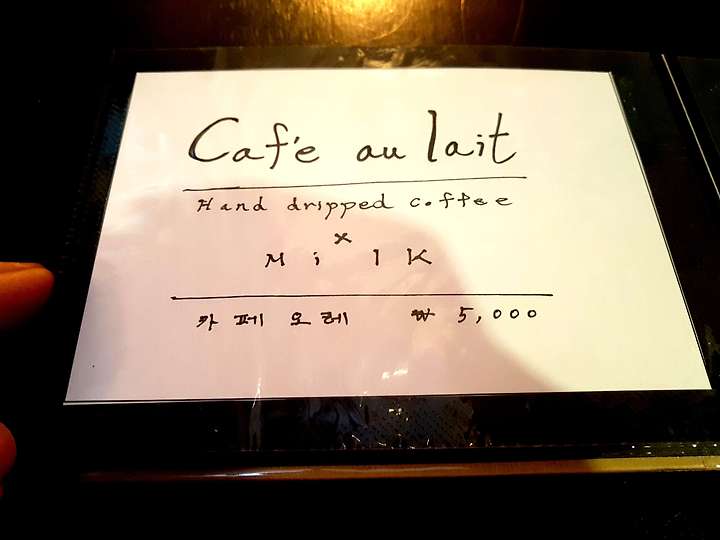 Café au lait
Hand dripped coffee
×
Milk
카페 오레 ₩ 5,000